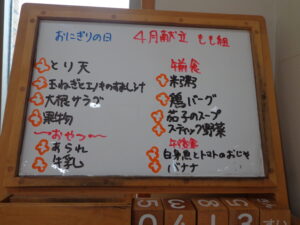 おにぎりの日
4月献立 もも組
とり天
玉ねぎとエノキのすまし汁
大根サラダ
果物
〜おやつ〜
あられ
牛乳
午前食
米粥
鶏バーグ
茄子のスープ
スティック野菜
午後食
白身魚とトマトのおじや
バナナ
0413